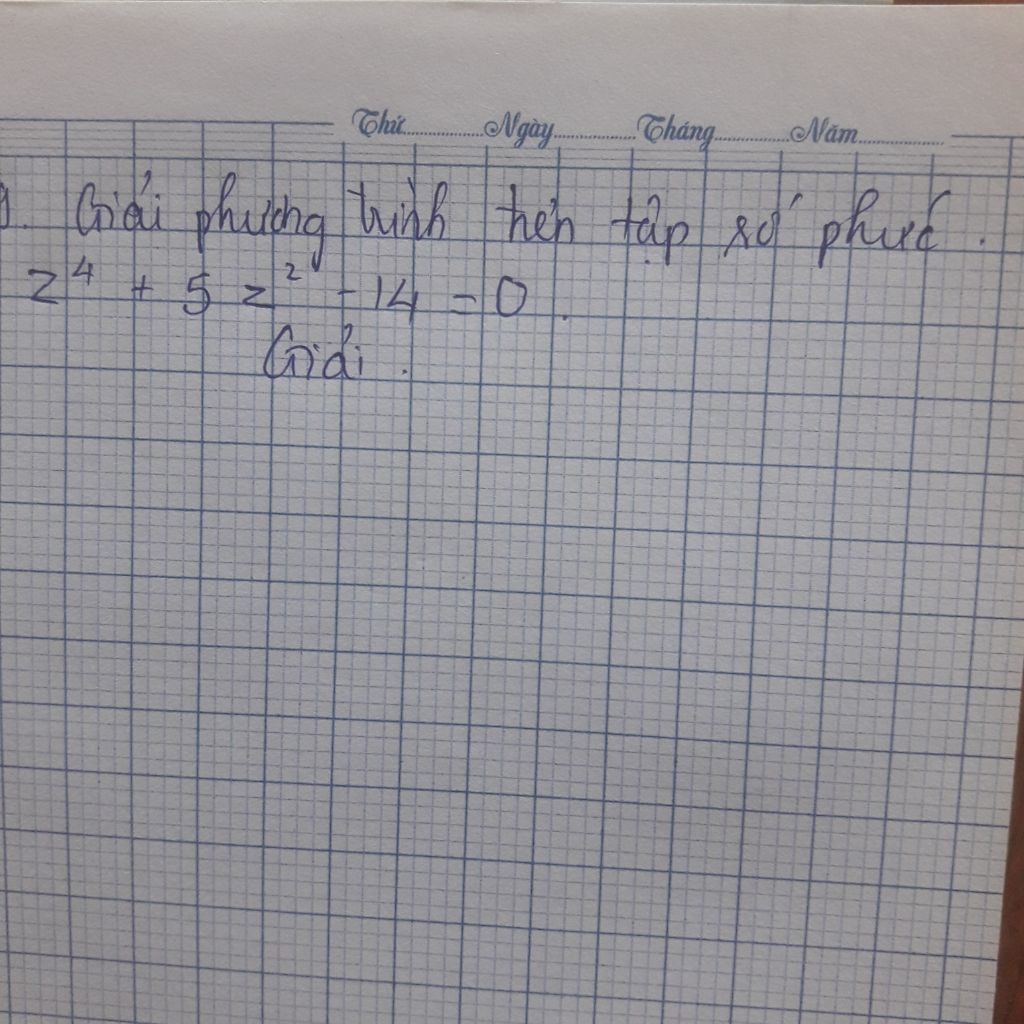 Thứ............Ngày............Tháng............Năm............
Giải phương trình trên tập số phức.
z⁴ + 5z² - 14 = 0.
Giải.